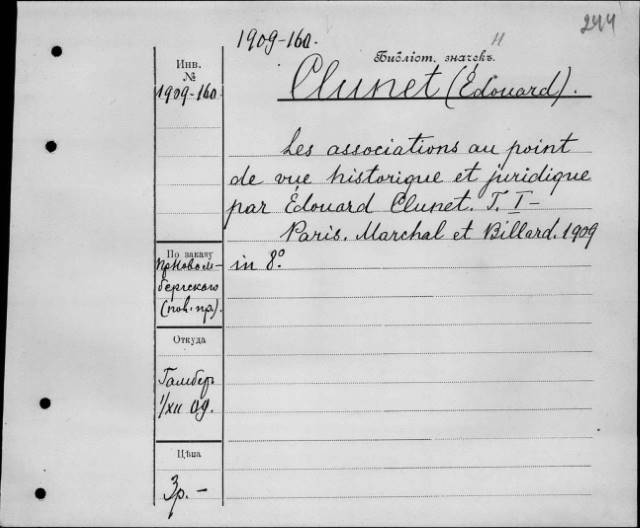 244
1909-160.
Библіот. значекъ
Инв.
№
1909-160
Clunet (Édouard).
Les associations au point
de vue historique et juridique
par Édouard Clunet. T. I-
Paris. Marchal et Billard. 1909
in 8º
По заказу
пр. Новом-
бергского
(нов. пр).
Откуда
Гамбер
1/XII 09.
Цѣна
3р.-